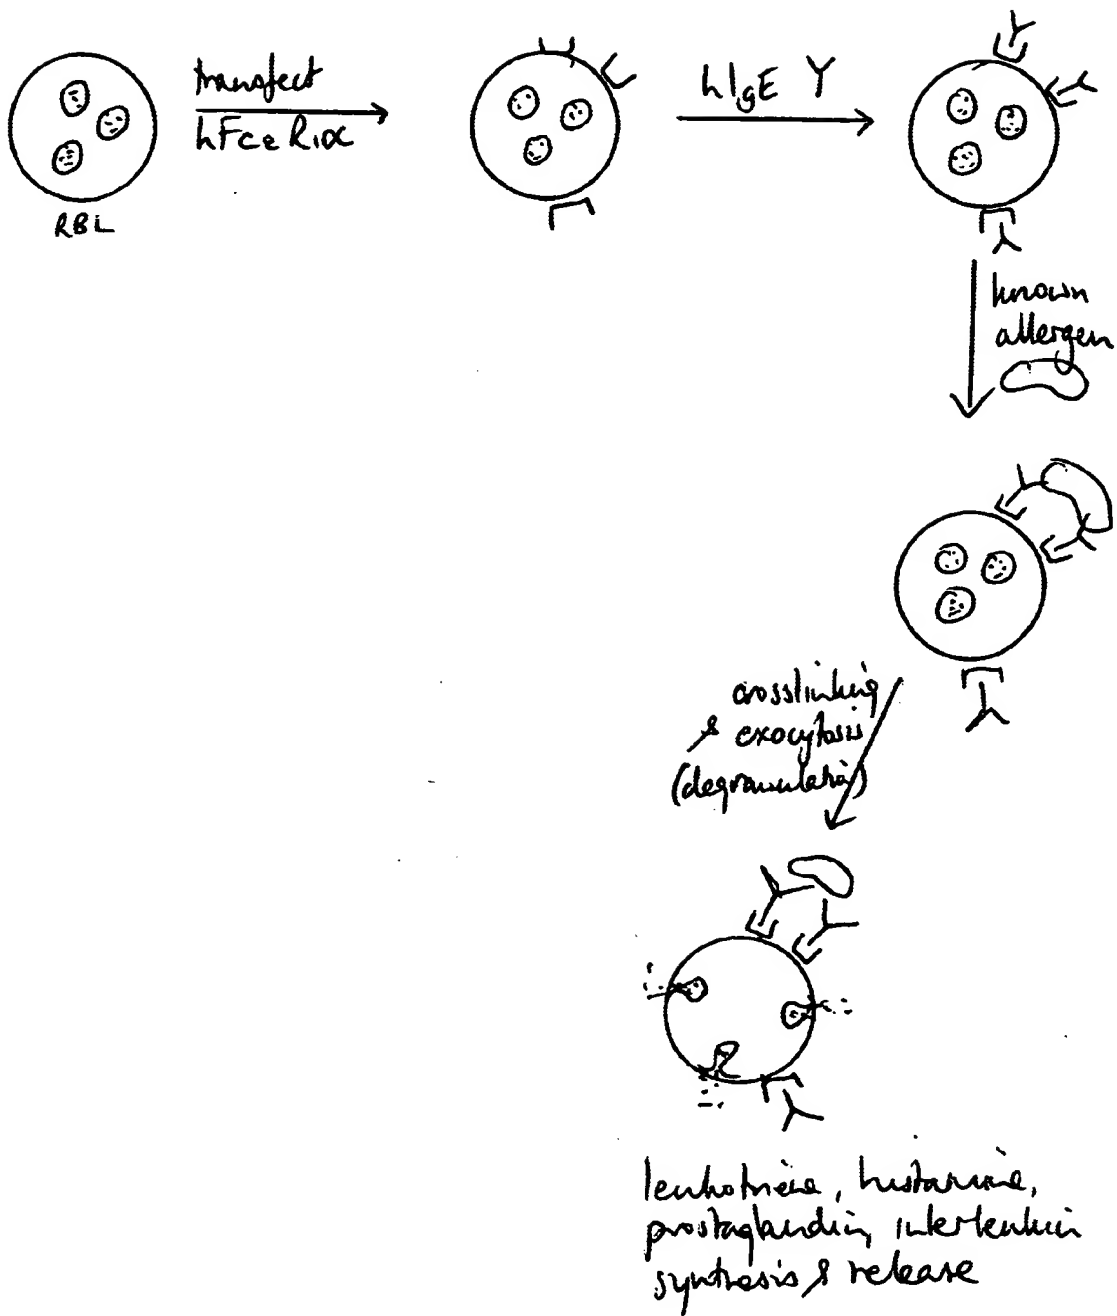 transfect
hFcεR1α
RBL
hIgE Y
known
allergen
crosslinking
& exocytosis
(degranulation)
leukotriene, histamine,
prostaglandin, interleukin
synthesis & release